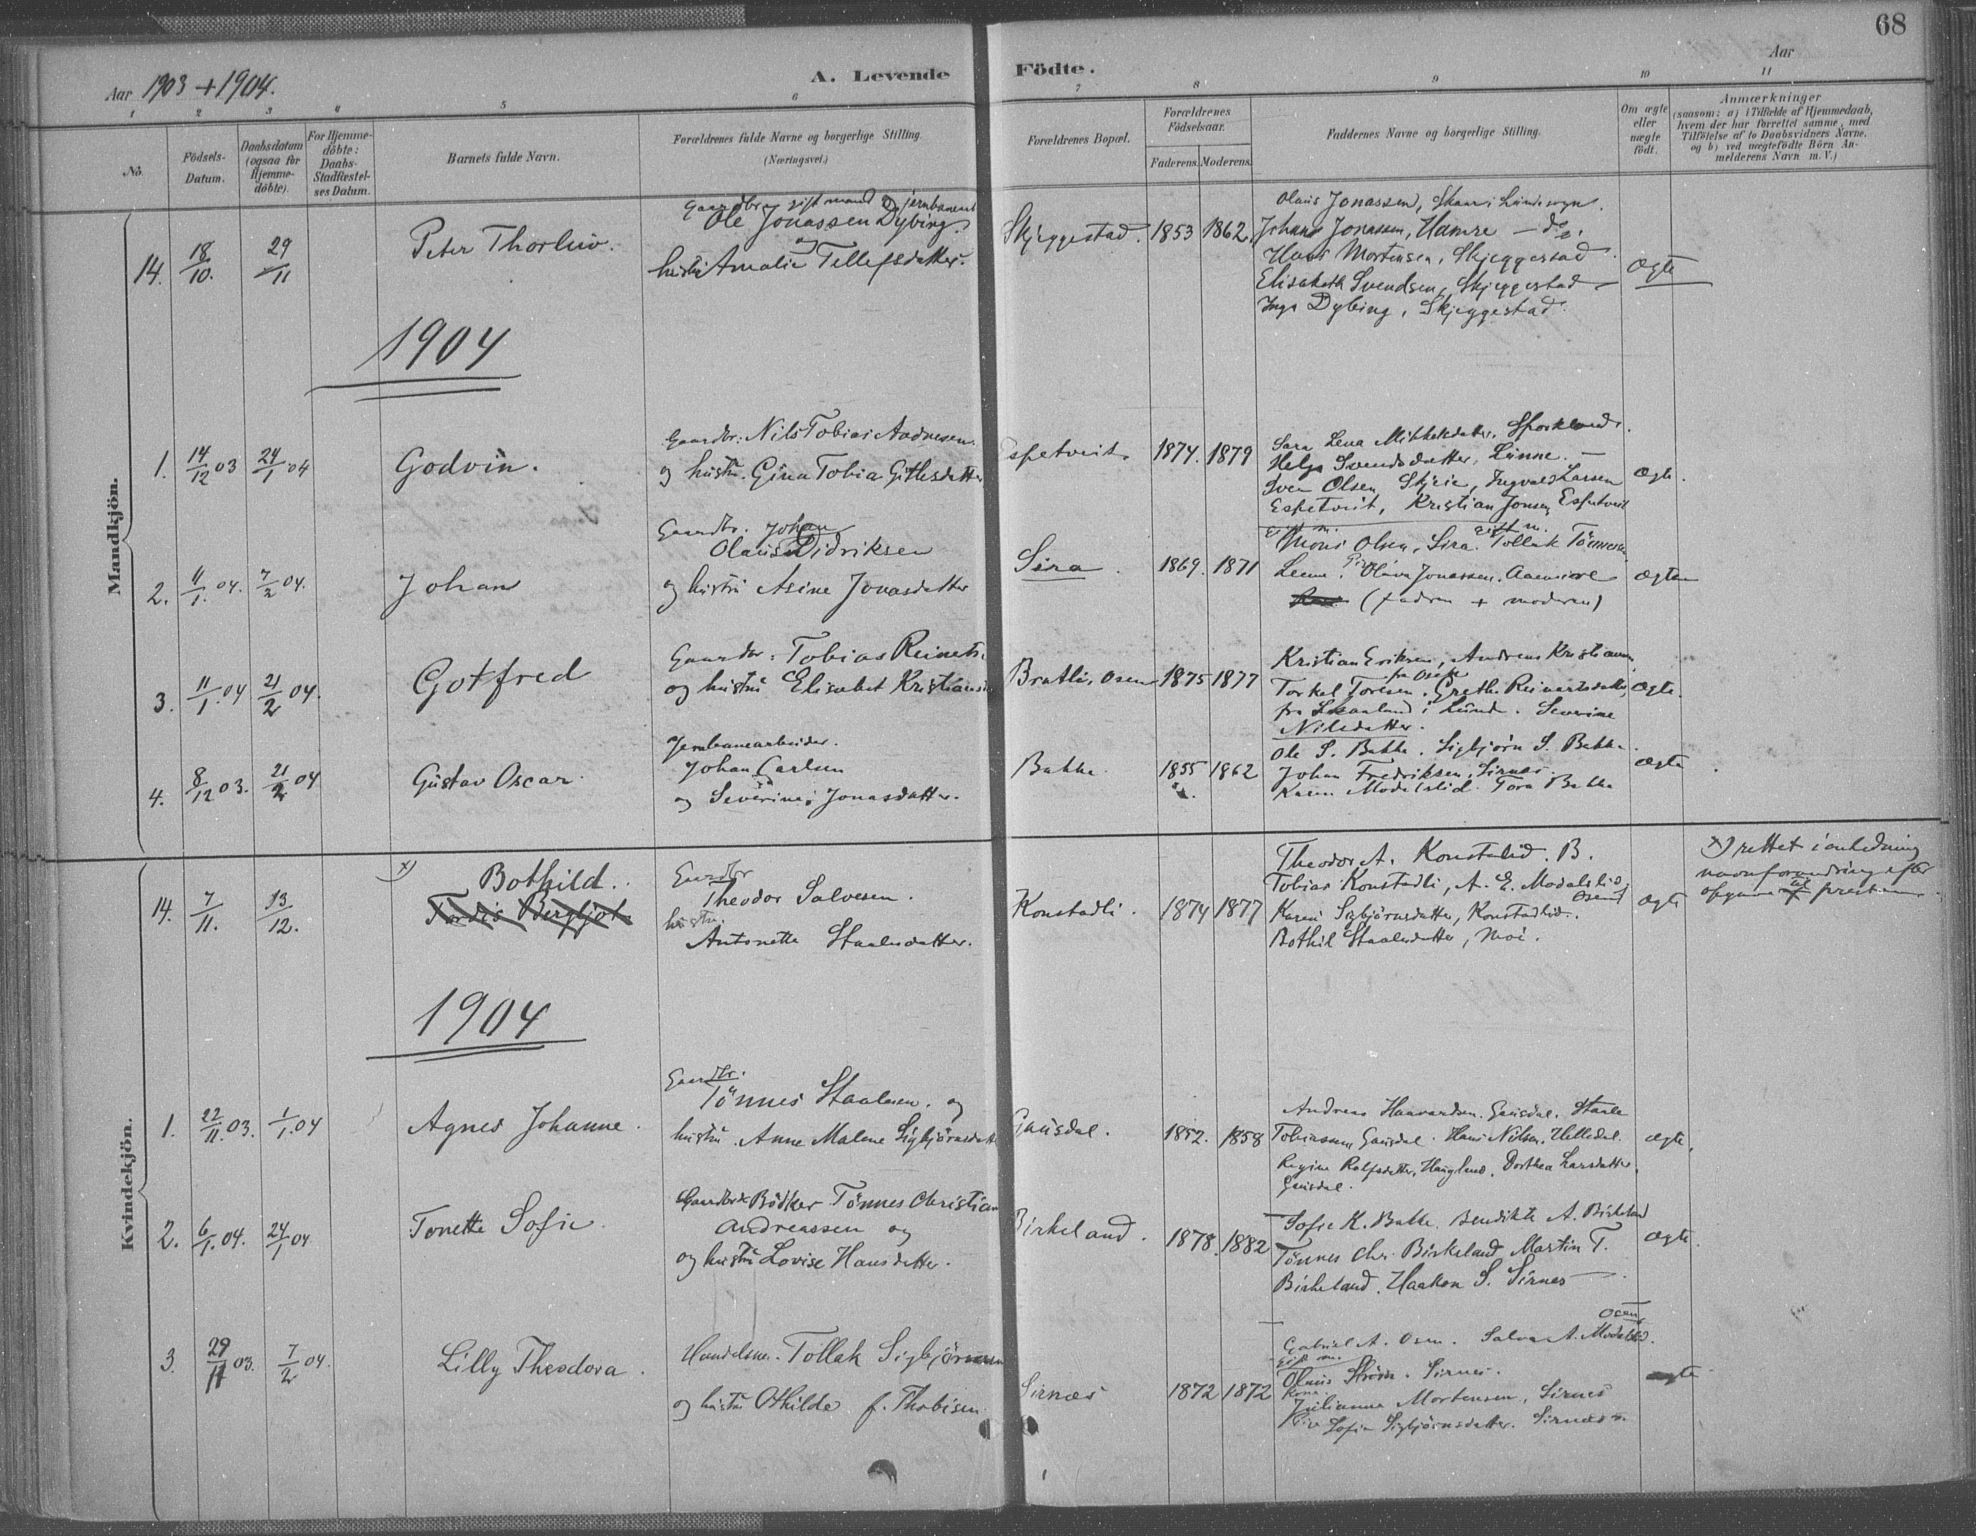 68
Aar 1903 + 1904.
A. Levende Födte.
Aar
1 2 3 4 5 6 7 8 9 10 11
No
Födsels-Datum.
Daabsdatum (ogsaa for Hjemmedöbte).
For Hjemmedöbte: Daabs-Stadfæstelses Datum.
Barnets fulde Navn.
Forældrenes fulde Navne og borgerlige Stilling.
(Næringsvei.)
Forældrenes Bopæl.
Forældrenes Födselsaar.
Faderens. Moderens.
Faddernes Navne og borgerlige Stilling.
Om ægte eller uægte födt.
Anmærkninger
(saasom: a) i Tilfælde af Hjemmedaab, hvem der har forrettet samme, med Tilföielse af to Daabsvidners Navne, og b) ved uægtefödte Börn Anmelderens Navn m. V.)
Mandkjön.
14. 18/10. 29/11
Peter Thorleiv.
Gaardbr. gift mand
Ole Jonassen Dybing.
og
hustru Amalie Tellefsdatter.
Skjeggestad. 1853 1862
Olaus Jonassen, Skaar i Lunde sogn.
Johans Jonassen, Hamre – do.
Hans Mortensen, Skjeggestad.
Elisabeth Svendsen, Skjeggestad
Inga Dybing, Skjeggestad.
Ægte
1904
1. 14/12 03 24/1 04
Godvin.
Gaardbr: Nils Tobias Aadnesen
og hustru. Gina Tobia Gitlesdatter
Espetveit 1874. 1879
Sara Lena Mikkelsdatter.
Helga Svendsdatter, Lunne. –
Sven Olsen, Ingvald Larsen
Espetveit, Kristian Jonsen Espetveit
Ægte.
2. 11/1. 04. 7/2 04.
Johan
Gaardbr. Johan
Olaus Didriksen
og hustru Asine Jonasdatter
Sira. 1869. 1871
gift m.
Moni Olsen, Sira. Tollak Tönnesen
Olava Jonassen.
(fadren + moderen)
Ægte
3. 11/1. 04 21/2 04.
Gotfred
Gaardbr: Tobias Reinerts.
og hustru Elisabet Kristians
Bratli, Osen 1875 1877
Kristian Eriksen, Andreas Kristiansen
Torkel Toresen. Grethe Reinertsdatter
fra Skaaland i Lund. Severine
Nilsdatter.
Ægte.
4. 8/12 03. 21/2 04
Gustav Oscar.
Jernbanearbeider.
Johan Carlsen
og Severine Jonasdatter.
Bakke. 1855 1862
Ole S. Bakke. Sigbjörn S. Bakke.
Johan Fredriksen, Sirnes.
Karen Modalslid. Tora Bakke
Ægte
Kvindekjön.
14. 7/11. 13/12.
x) Bothild.
Tordis Bergljot
Gaardbr
Theodor Salvesen.
hustru.
Antonette Staalesdatter.
Konstadli. 1874 1877
Theodor A. Konstalid. B.
Tobias Konstadli, A. E. Modalslid,
Osen
Karen Sigbjörnsdatter, Konstadlid.
Bothil Staalesdatter, Moi.
Ægte
x) rettet i anledning
navneforandring efter
opgave til presten.
1904
1. 22/11. 03. 1/1. 04
Agnes Johanne.
Gaardbr.
Tönnes Staalesen. og
hustru. Anne Malene Sigbjörnsdatter
Gausdal. 1852. 1858
Andreas Haavardsen. Gausdal. Staale
Tobiassen, Gausdal. Hans Nilsen, Helledal.
Regine Rolfsdatter, Haugland. Dorthea Larsdatter,
Gausdal.
Ægte,
2. 6/1. 04. 24/1 04
Tonette Sofie.
Gaardbr. Bödker Tönnes Christian
Andreassen og
og hustru Lovise Hansdatter.
Birkeland. 1878. 1882
Sofie K. Bakke. Bendikte A. Birkeland
Tönnes Chr. Birkeland Martin T.
Birkeland. Haakon S. Sirnes
Ægte.
3. 29/11 03. 7/2 04.
Lilly Theodora.
Handelsm. Tollak Sigbjörnsen
og hustru Othilde f. Thobisen.
Sirnæs 1872 1872
Osen
Gabriel A. Osen. Salve A. Modalslid.
Gift m.
Olaus Sirnes.
Kone.
Julianne Mortensen, Sirnes
Pige Sofie Sigbjörnsdatter. Sirnæs.
ægte